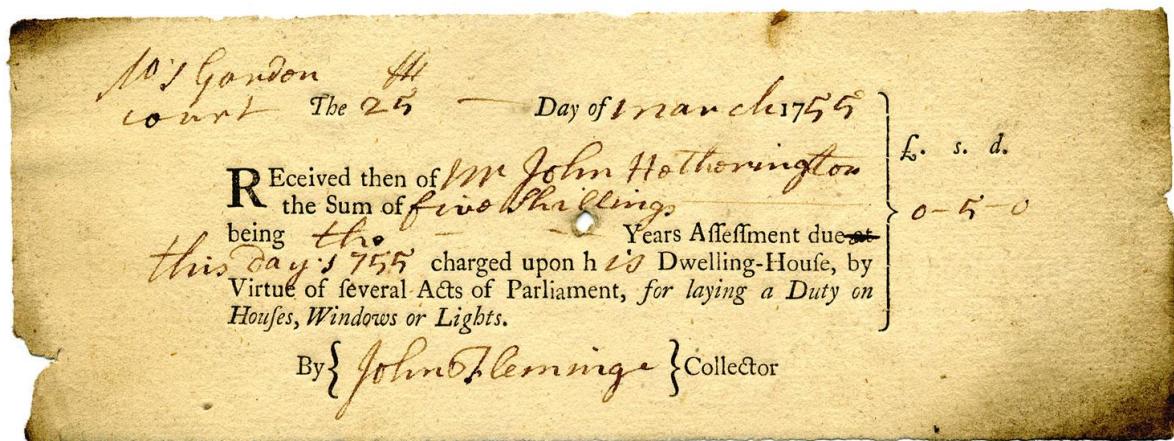 Gardon
court The 25 th Day of march 1755
£. s. d.
REceived then of Mr John Hetherington
the Sum of five Shillings 0-5-0
being the Years Aſſeſſment due at
this day 1755 charged upon h is Dwelling-Houſe, by
Virtue of ſeveral Acts of Parliament, for laying a Duty on
Houſes, Windows or Lights.
By { John Fleminge } Collector